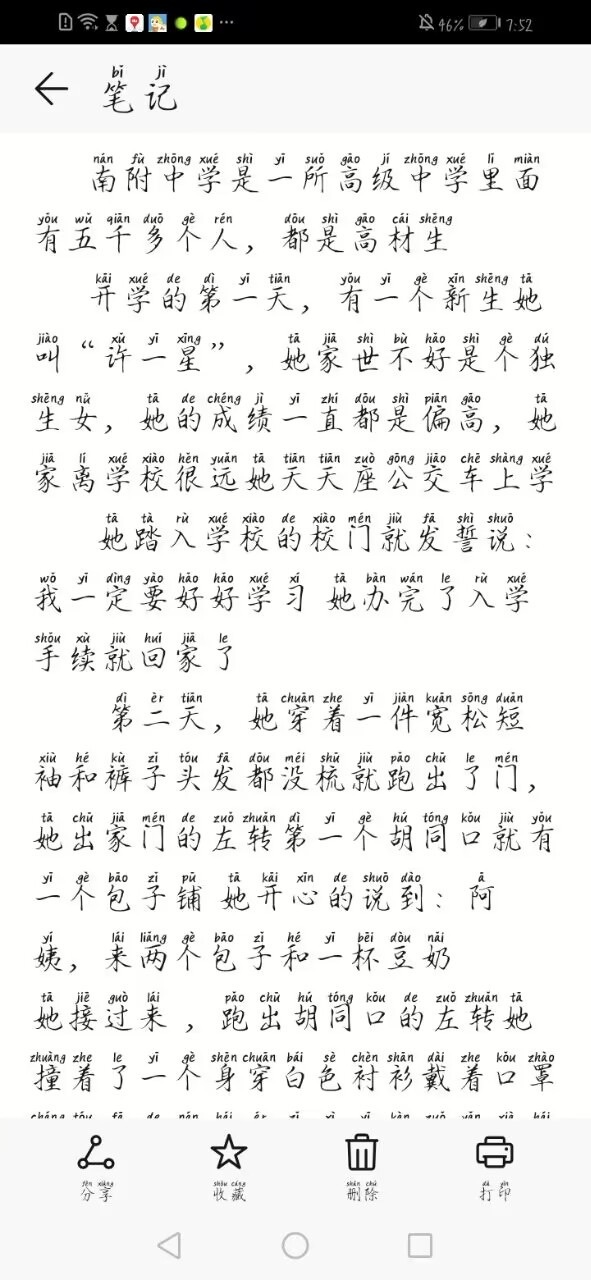 46% 7:52
bǐ jì
笔记
nán fù zhōng xué shì yī suǒ gāo jí zhōng xué lǐ miàn
南附中学是一所高级中学里面
yǒu wǔ qiān duō gè rén dōu shì gāo cái shēng
有五千多个人，都是高材生
kāi xué de dì yī tiān yǒu yī gè xīn shēng tā
开学的第一天，有一个新生她
jiào xǔ yī xīng tā jiā shì bù hǎo shì gè dú
叫“许一星”，她家世不好是个独
shēng nǚ tā de chéng jì yī zhí dōu shì piān gāo tā
生女，她的成绩一直都是偏高，她
jiā lí xué xiào hěn yuǎn tā tiān tiān zuò gōng jiāo chē shàng xué
家离学校很远她天天座公交车上学
tā tà rù xué xiào de xiào mén jiù fā shì shuō
她踏入学校的校门就发誓说：
wǒ yī dìng yào hǎo hǎo xué xí tā bàn wán le rù xué
我一定要好好学习 她办完了入学
shǒu xù jiù huí jiā le
手续就回家了
dì èr tiān tā chuān zhe yī jiàn kuān sōng duǎn
第二天，她穿着一件宽松短
xiù hé kù zǐ tóu fà dōu méi shū jiù pǎo chū le mén
袖和裤子头发都没梳就跑出了门，
tā chū jiā mén de zuǒ zhuǎn dì yī gè hú tóng kǒu jiù yǒu
她出家门的左转第一个胡同口就有
yī gè bāo zǐ pù tā kāi xīn de shuō dào ā
一个包子铺 她开心的说到：阿
yí lái liǎng gè bāo zǐ hé yī bēi dòu nǎi
姨，来两个包子和一杯豆奶
tā jiē guò lái pǎo chū hú tóng kǒu de zuǒ zhuǎn tā
她接过来，跑出胡同口的左转她
zhuàng zhe le yī gè shēn chuān bái sè chèn shān dài zhe kǒu zhào
撞着了一个身穿白色衬衫戴着口罩
fēn xiǎng shōu cáng shān chú dǎ yìn
分享 收藏 删除 打印